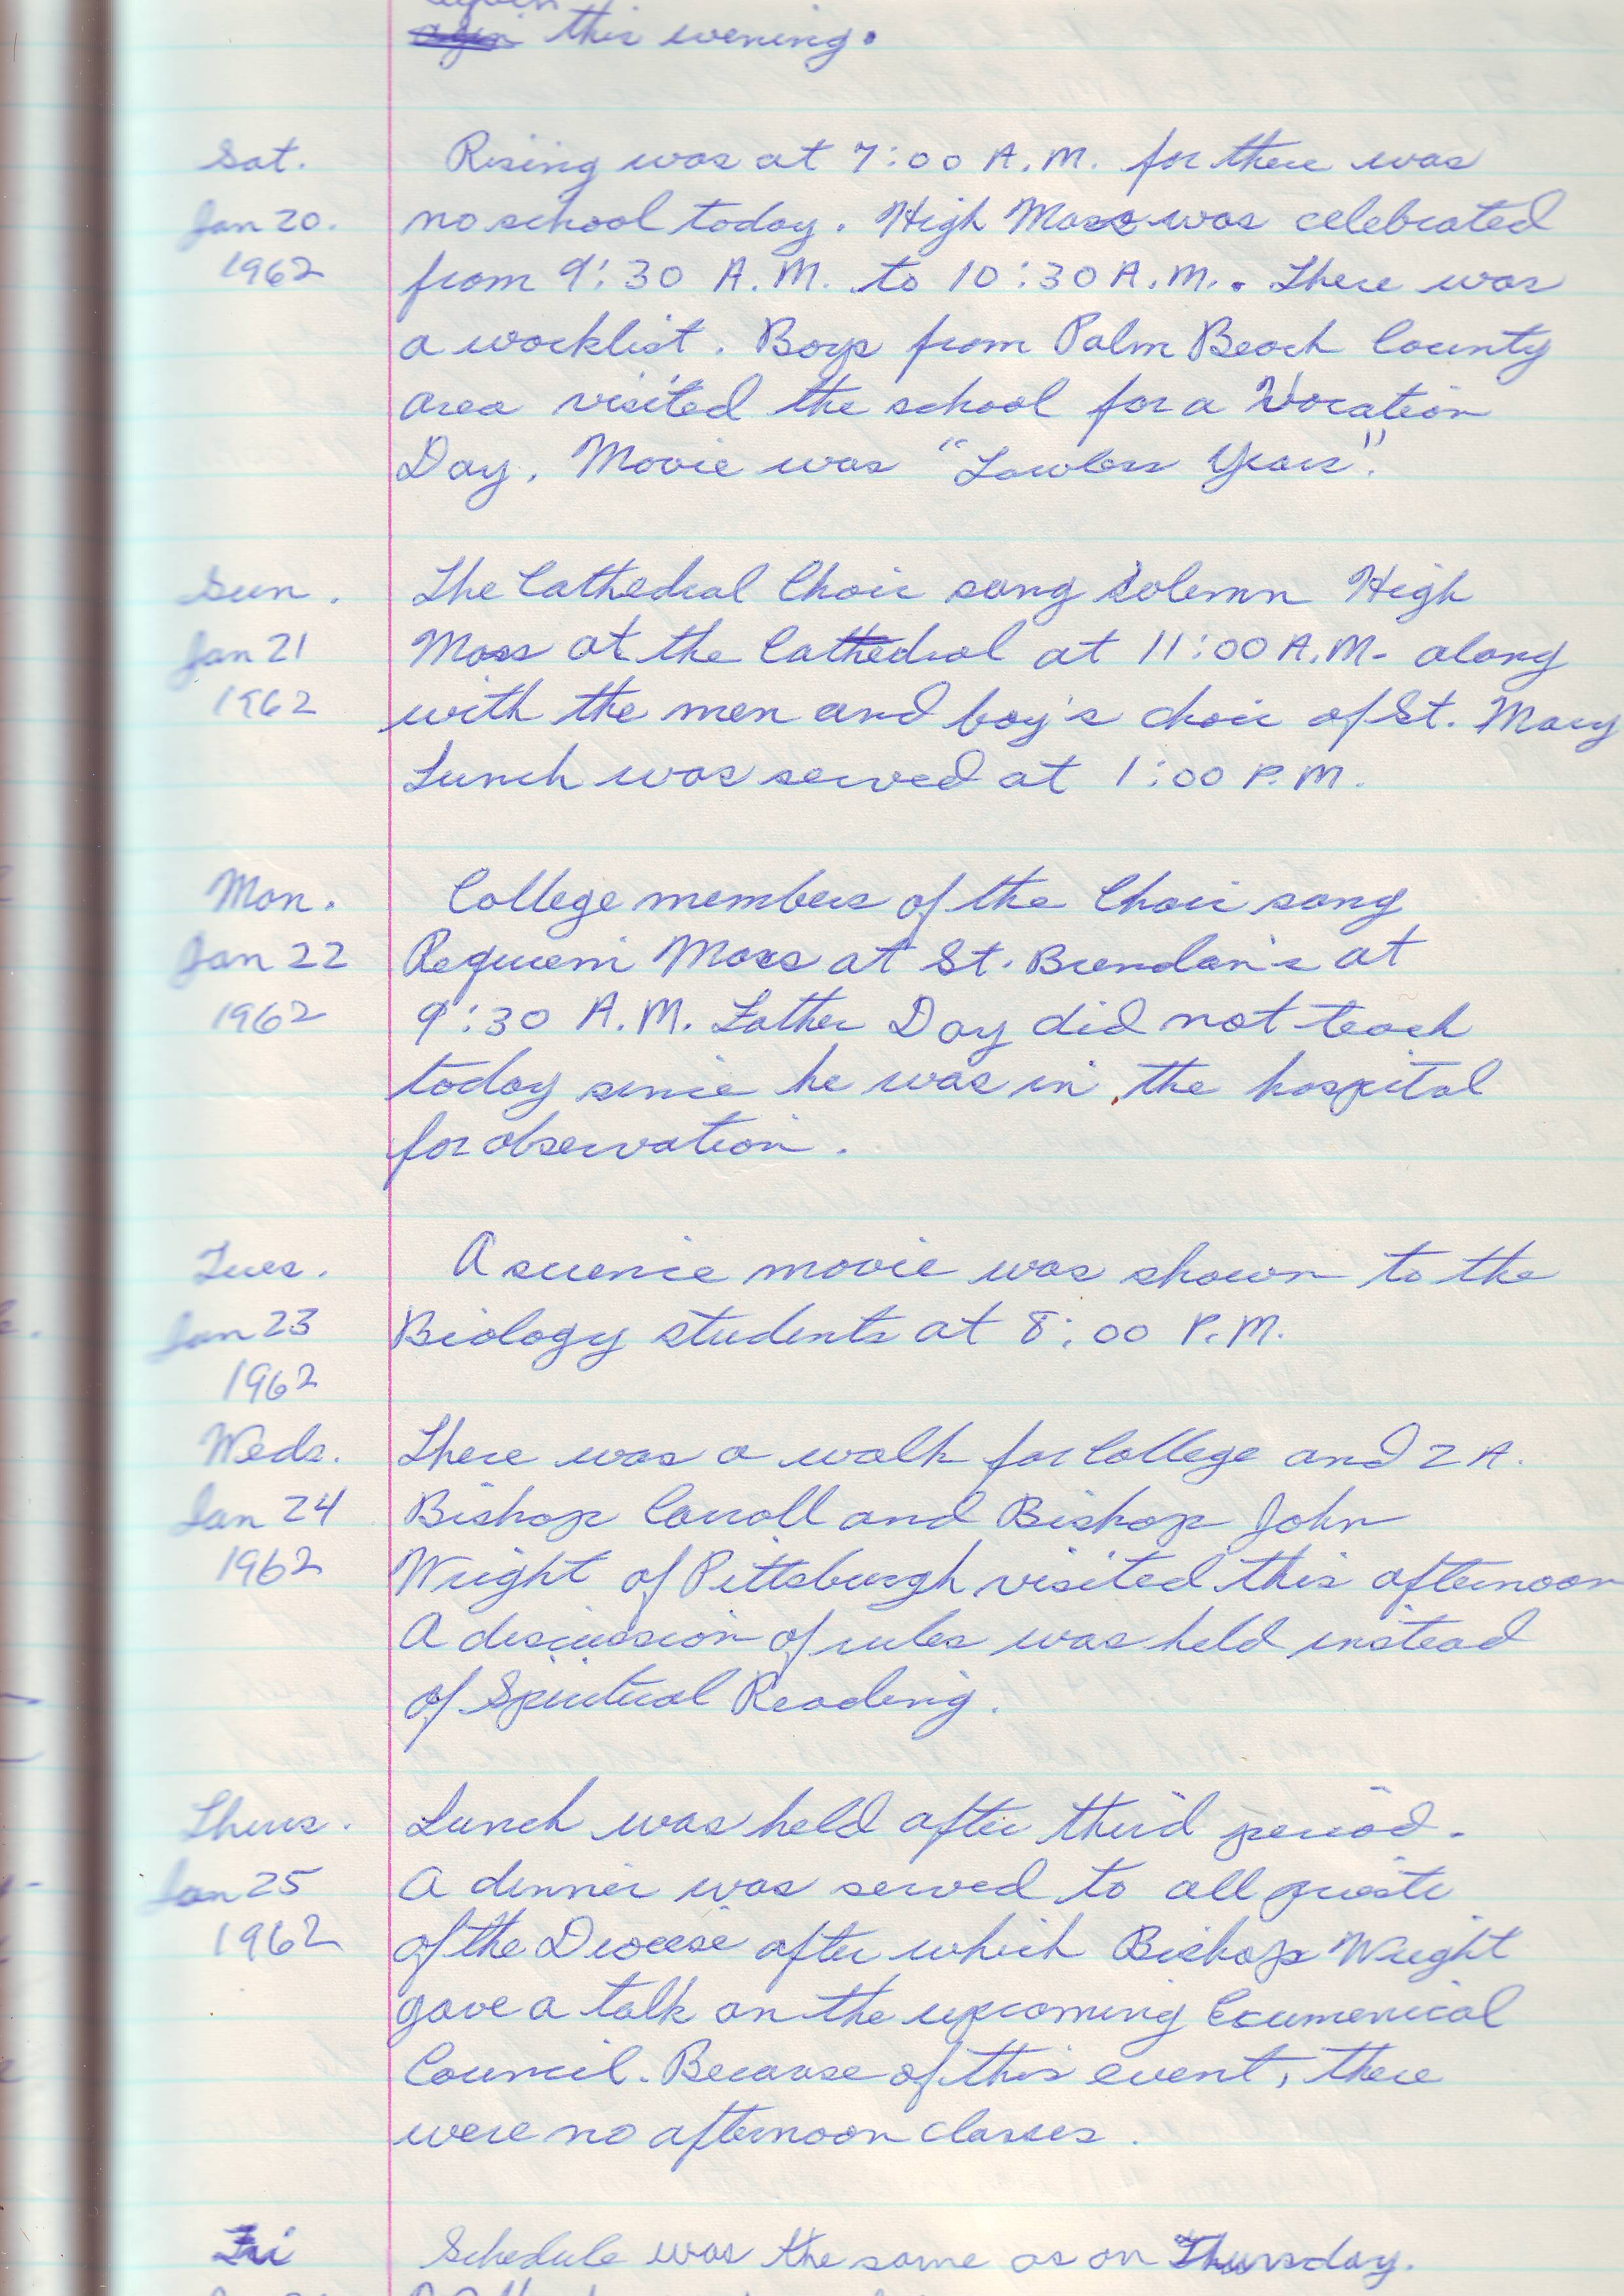 again
this evening.
Sat. Rising was at 7:00 A.M. for there was
Jan 20. no school today. High Mass was celebrated
1962 from 9:30 A.M. to 10:30 A.M.. There was
a worklist. Boys from Palm Beach County
area visited the school for a Vocation
Day. Movie was "Lawless Years".
Sun. The Cathedral Choir sang Solemn High
Jan 21 Mass at the Cathedral at 11:00 A.M. along
1962 with the men and boy's choir of St. Mary
Lunch was served at 1:00 P.M.
Mon. College members of the Choir sang
Jan 22 Requiem Mass at St. Brendan's at
1962 9:30 A.M. Father Day did not teach
today since he was in the hospital
for observation.
Tues. A science movie was shown to the
Jan 23 Biology students at 8:00 P.M.
1962
Weds. There was a walk for College and 2A.
Jan 24 Bishop Carroll and Bishop John
1962 Wright of Pittsburgh visited this afternoon
A discussion of rules was held instead
of Spiritual Reading.
Thurs. Lunch was held after third period.
Jan 25 A dinner was served to all priests
1962 of the Diocese after which Bishop Wright
gave a talk on the upcoming Ecumenical
Council. Because of this event, there
were no afternoon classes.
Fri Schedule was the same as on Thursday.